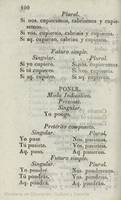 400
Plural.
Si nos. cupiéramos, cabríamos y cupiésemos.
Si vos. cupierais, cabriais y cupieseis.
Si aq. cupieran, cabrian y cupiesen.
Futuro simple.
Singular. Plural.
Si yo cupiere. Si nos. cupiéremos
Si tú cupieres. Si vos. cupiereis.
Si aq. cupiere. Si aq. cupieren.
PONER.
Modo Indicativo.
Presente.
Singular.
Yo pongo.
Pretérito compuesto.
Singular. Plural.
Yo puse Nos. pusimos.
Tú pusiste. Vos. pusisteis.
Aq. puso. Aq. pusieron.
Futuro simple.
Singular. Plural.
Yo pondré. Nos. pondremos.
Tú pondrás. Vos. pondreis.
Aq. pondrá. Aq. pondrán.